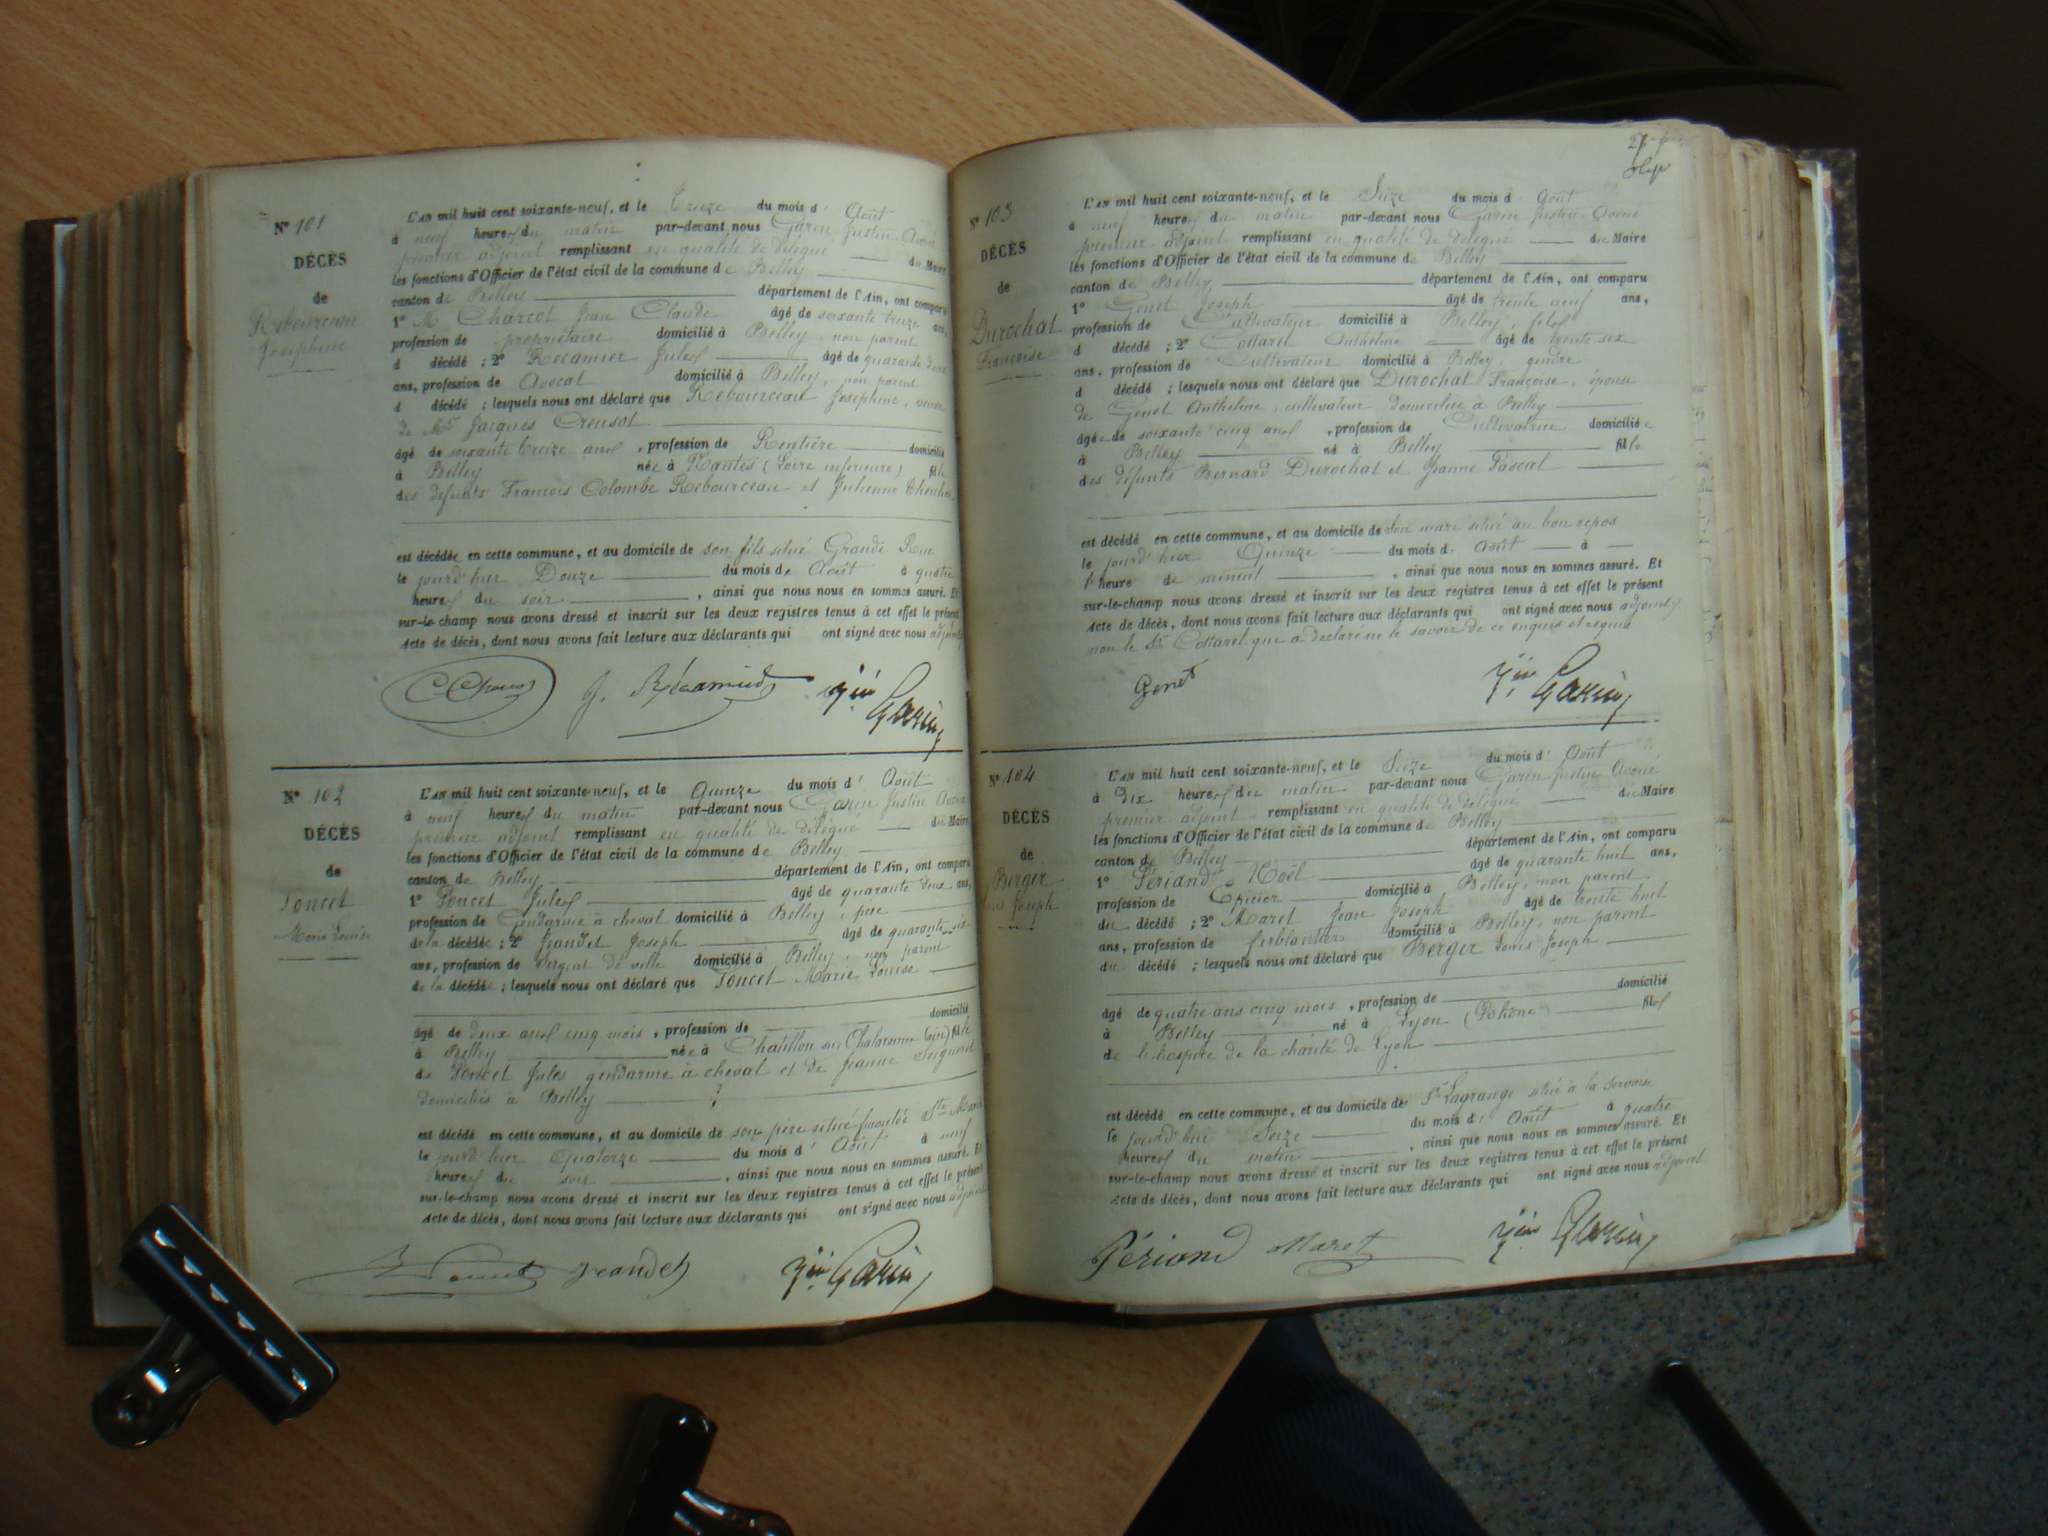 Nº 101
DÉCÈS
de
Rebourceau
Josephine
L'AN mil huit cent soixante-neuf, et le Treize du mois d' Août
à neuf heures du matin par-devant nous Garin Justin Avoué
premier adjoint remplissant en qualité de délégué du Maire
les fonctions d'Officier de l'état civil de la commune de Belley
canton de Belley département de l'Ain, ont comparu
1º M Charcot Jean Claude âgé de soixante treize ans,
profession de propriétaire domicilié à Belley, non parent
d décédé ; 2º Récamier Jules âgé de quarante deux
ans, profession de Avocat domicilié à Belley, non parent
d décédé ; lesquels nous ont déclaré que Rebourceau Josephine, veuve
de Mr Jacques Creusot
âgé de soixante treize ans, profession de Rentière domicilié
à Belley née à Nantes (Loire inférieure) fille
des défunts François Colombe Rebourceau et Julienne
est décédée en cette commune, et au domicile de son fils situé Grande Rue
le jourd'hier Douze du mois de Août à quatre
heures du soir, ainsi que nous nous en sommes assuré. Et
sur-le-champ nous avons dressé et inscrit sur les deux registres tenus à cet effet le présent
Acte de décès, dont nous avons fait lecture aux déclarants qui ont signé avec nous adjoint
J. Récamier Jin Garin
Nº 102
DÉCÈS
de
Poncet
Marie Louise
L'AN mil huit cent soixante-neuf, et le Quinze du mois d' Août
à neuf heures du matin par-devant nous Garin Justin Avoué
premier adjoint remplissant en qualité de délégué du Maire
les fonctions d'Officier de l'état civil de la commune de Belley
canton de Belley département de l'Ain, ont comparu
1º Poncet Jules âgé de quarante deux ans,
profession de Gendarme à cheval domicilié à Belley, père
de la décédée ; 2º Jeandet Joseph âgé de quarante six
ans, profession de Sergent de ville domicilié à Belley, non parent
de la décédée ; lesquels nous ont déclaré que Poncet Marie Louise
âgé de deux ans cinq mois, profession de domicilié
à Belley née à Chatillon sur Chalaronne (ain) fille
de Poncet Jules gendarme à cheval et de Jeanne
domiciliés à Belley
est décédé en cette commune, et au domicile de son père situé
le jourd'hier Quatorze du mois d' Août à neuf
heures du soir, ainsi que nous nous en sommes assuré. Et
sur-le-champ nous avons dressé et inscrit sur les deux registres tenus à cet effet le présent
Acte de décès, dont nous avons fait lecture aux déclarants qui ont signé avec nous adjoint
Poncet Jeandet Jin Garin
Nº 103
DÉCÈS
de
Durochat
Françoise
L'AN mil huit cent soixante-neuf, et le Seize du mois d' Août
à neuf heures du matin par-devant nous Garin Justin Avoué
premier adjoint remplissant en qualité de délégué du Maire
les fonctions d'Officier de l'état civil de la commune de Belley
canton de Belley département de l'Ain, ont comparu
1º Genet Joseph âgé de trente neuf ans,
profession de Cultivateur domicilié à Belley, fils
d décédé ; 2º Cottarel Anthelme âgé de trente six
ans, profession de Cultivateur domicilié à Belley, gendre
d décédé ; lesquels nous ont déclaré que Durochat Françoise, épouse
de Genet Anthelme, cultivateur domiciliée à Belley
âgée de soixante cinq ans, profession de Cultivatrice domiciliée
à Belley né à Belley fille
des défunts Bernard Durochat et Jeanne Pascal
est décédé en cette commune, et au domicile de son mari situé au bon repos
le jourd'hier Quinze du mois d. Août à
l'heure de minuit, ainsi que nous nous en sommes assuré. Et
sur-le-champ nous avons dressé et inscrit sur les deux registres tenus à cet effet le présent
Acte de décès, dont nous avons fait lecture aux déclarants qui ont signé avec nous adjoint,
non le Sr Cottarel que a déclaré ne le savoir de ce enquis et requis
Genet Jin Garin
Nº 104
DÉCÈS
de
Berger
Louis Joseph
L'AN mil huit cent soixante-neuf, et le Seize du mois d' Août
à Dix heures du matin par-devant nous Garin Justin Avoué
premier adjoint remplissant en qualité de délégué du Maire
les fonctions d'Officier de l'état civil de la commune de Belley
canton de Belley département de l'Ain, ont comparu
1º Périand Noël âgé de quarante huit ans,
profession de Epicier domicilié à Belley, non parent
du décédé ; 2º Maret Jean Joseph âgé de trente huit
ans, profession de ferblantier domicilié à Belley, non parent
du décédé ; lesquels nous ont déclaré que Berger Louis Joseph
âgé de quatre ans cinq mois, profession de domicilié
à Belley né à Lyon (Rhône) fils
de l'hospice de la charité de Lyon
est décédé en cette commune, et au domicile de Sr Lagrange situé à la
le jourd'hui Seize du mois d' Août à quatre
heures du matin, ainsi que nous nous en sommes assuré. Et
sur-le-champ nous avons dressé et inscrit sur les deux registres tenus à cet effet le présent
Acte de décès, dont nous avons fait lecture aux déclarants qui ont signé avec nous adjoint
Périand Maret Jin Garin